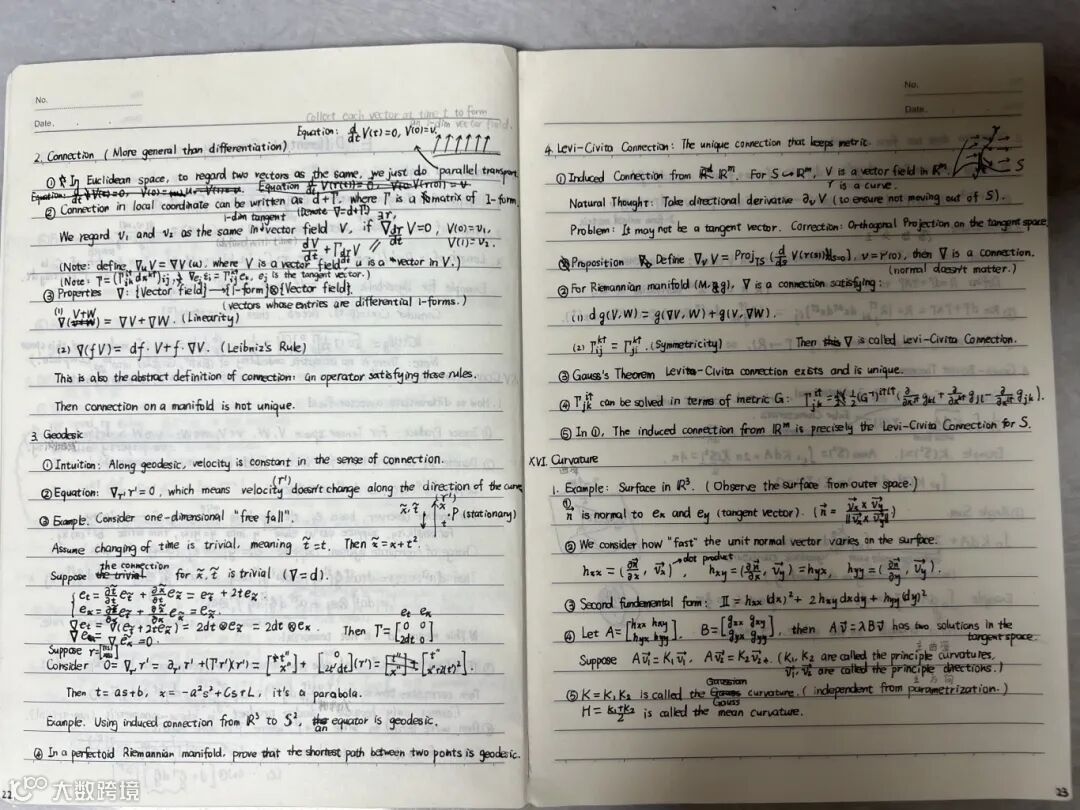 No.
Date.
Collect each vector at time t to form
an 1-dim vector field.
Equation: d/dt V(t)=0, V(0)=v.
2. Connection (More general than differentiation)
① In Euclidean space, to regard two vectors as the same, we just do "parallel transport
② Connection in local coordinate can be written as d+Γ, where Γ is a matrix of 1-form.
1-dim tangent (Denote ∇=d+Γ)
We regard v₁ and v₂ as the same in vector field V, if ∇_{dr/dt} V=0, V(0)=v₁,
V(1)=v₂.
dV/dt + Γ_{dr/dt} V
(Note: define ∇_u V = ∇V(u), where V is a vector field, u is a vector in V.)
③ Properties ∇: {Vector field} → {1-form}⊗{Vector field}.
(vectors whose entries are differential 1-forms.)
(1) ∇(V+W) = ∇V+∇W. (Linearity)
(2) ∇(fV) = df·V+f·∇V. (Leibniz's Rule)
This is also the abstract definition of connection: an operator satisfying those rules.
Then connection on a manifold is not unique.
3. Geodesic
① Intuition: Along geodesic, velocity is constant in the sense of connection.
② Equation: ∇_{r'} r'=0, which means velocity (r') doesn't change along the direction of the curve (r')
③ Example. Consider one-dimensional "free fall".
x̃, t̃ x t P (stationary)
Assume changing of time is trivial, meaning t̃=t. Then x̃=x+t².
Suppose the connection for x̃, t̃ is trivial (∇=d).
e_t = ∂t̃/∂t e_t̃ + ∂x̃/∂t e_x̃ = e_t̃ + 2te_x̃
e_x = ∂t̃/∂x e_t̃ + ∂x̃/∂x e_x̃ = e_x̃.
∇e_t = ∇(e_t̃+2te_x̃) = 2dt⊗e_x̃ = 2dt⊗e_x.
∇e_x = ∇e_x̃ = 0.
e_t e_x
Then Γ = [0 0; 2dt 0]
Suppose r=
Consider 0=∇_{r'} r' = ∂_{r'} r' +(Γr')(r') = [t''; x''] + [0 0; 2t'dt 0](r') = [t''; x''+2(t')²].
Then t=as+b, x=-a²s²+Cs+L, it's a parabola.
Example. Using induced connection from ℝ³ to S², an equator is geodesic.
④ In a perfectoid Riemannian manifold, prove that the shortest path between two points is geodesic.
22
No.
Date.
4. Levi-Civita Connection: The unique connection that keeps metric.
① Induced Connection from ℝᵐ. For S↪ℝᵐ, V is a vector field in ℝᵐ.
r is a curve.
r
S
Natural Thought: Take directional derivative ∂_v V (to ensure not moving out of S).
Problem: It may not be a tangent vector. Correction: Orthogonal Projection on the tangent space
Proposition Define: ∇_v V = Proj_{TS}(d/ds V(r(s))|_{s=0}), v=r'(0), then ∇ is a connection.
(normal doesn't matter.)
② For Riemannian manifold (M, g), ∇ is a connection satisfying:
(1) dg(V,W) = g(∇V,W)+g(V,∇W).
(2) Γ_ij^k = Γ_ji^k. (Symmetricity) Then this ∇ is called Levi-Civita Connection.
③ Gauss's Theorem Levita-Civita connection exists and is unique.
④ Γ_jk^i can be solved in terms of metric G:
⑤ In ①, The induced connection from ℝᵐ is precisely the Levi-Civita Connection for S.
XVI. Curvature
1. Example: Surface in ℝ³. (Observe the surface from outer space.)
① n⃗ is normal to e_x and e_y (tangent vector). (n⃗ = (v⃗_x×v⃗_y)/‖v⃗_x×v⃗_y‖)
② We consider how "fast" the unit normal vector varies on the surface.
dot product
h_xx = (∂n⃗/∂x, v⃗_x), h_xy = (∂n⃗/∂x, v⃗_y) = h_yx, h_yy = (∂n⃗/∂y, v⃗_y).
③ Second fundamental form: Ⅱ = h_xx(dx)²+2h_xy dxdy+h_yy(dy)².
④ Let A=[h_xx h_xy; h_yx h_yy], B=[g_xx g_xy; g_yx g_yy], then Av⃗=λBv⃗ has two solutions in the
tangent space.
Suppose Av⃗₁=K₁v⃗₁, Av⃗₂=K₂v⃗₂. (K₁, K₂ are called the principle curvatures,
v⃗₁, v⃗₂ are called the principle directions.)
⑤ K=K₁K₂ is called the Gaussian curvature. (independent from parametrization.)
H = (K₁+K₂)/2 is called the mean curvature.
23
大数跨境